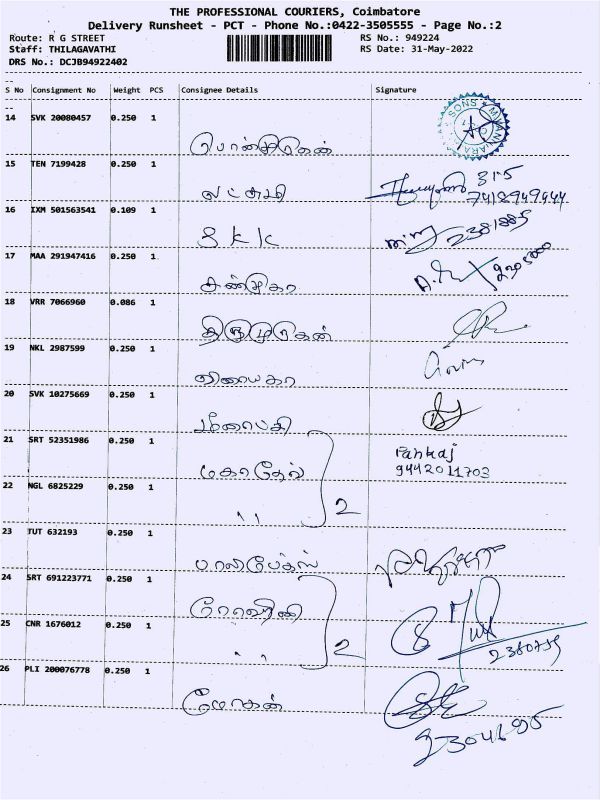 THE PROFESSIONAL COURIERS, Coimbatore
Delivery Runsheet - PCT - Phone No.:0422-3505555 - Page No.:2
Route: R G STREET RS No.: 949224
Staff: THILAGAVATHI RS Date: 31-May-2022
DRS No.: DCJB94922402
S No Consignment No Weight PCS Consignee Details Signature
14 SVK 20080457 0.250 1
பொன்முருகன்
15 TEN 7199428 0.250 1
லட்சுமி 315
7418949444
16 IXM 501563541 0.109 1
S K K 2381885
17 MAA 291947416 0.250 1
சண்முகா
18 VRR 7066960 0.086 1
திருமுருகன்
19 NKL 2987599 0.250 1
விநாயகா
20 SVK 10275669 0.250 1
21 SRT 52351986 0.250 1
மகாதேவ் Pankaj
9442011703
22 NGL 6825229 0.250 1
" 2
23 TUT 632193 0.250 1
பாலிபேக்ஸ்
24 SRT 691223771 0.250 1
ரோஹிணி
25 CNR 1676012 0.250 1
" 2
2380759
26 PLI 200076778 0.250 1
மோகன்
2304695